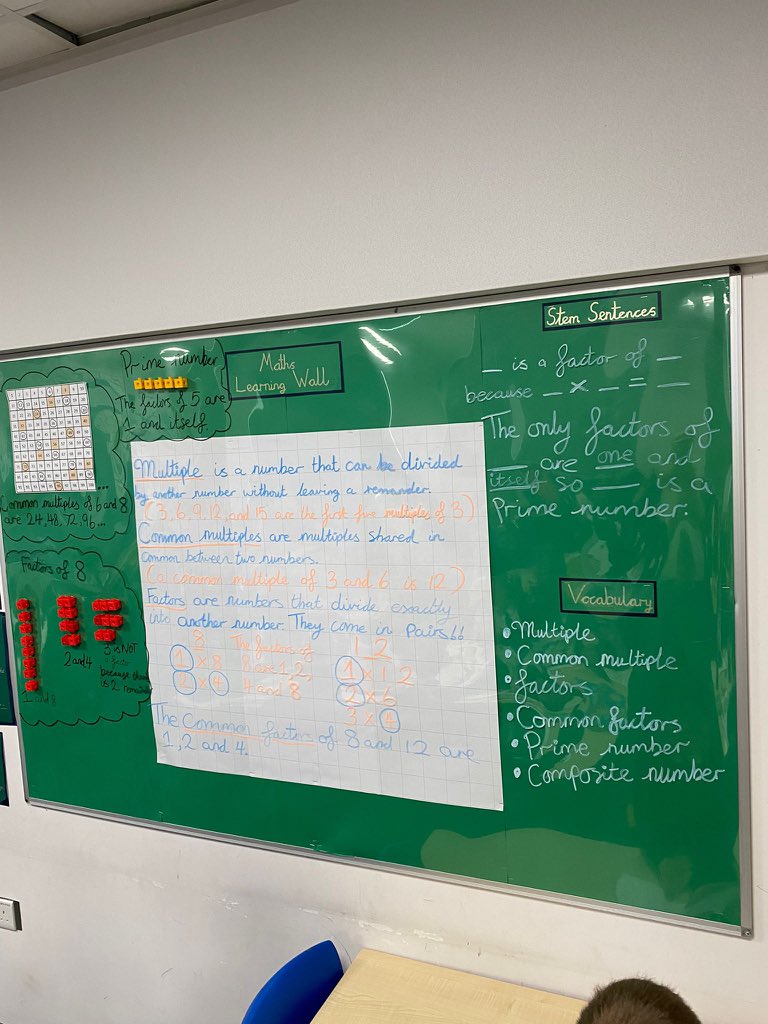 Stem Sentences
_ is a factor of _
because _ x _ = _
The only factors of
_ are one and
itself so _ is a
Prime number.
Maths
Learning Wall
Prime number
The factors of 5 are
1 and itself
Common multiples of 6 and 8
are 24, 48, 72, 96...
Factors of 8
1 and 8
2 and 4
3 is NOT
a factor
because there
is 2 remainder
Multiple is a number that can be divided
by another number without leaving a remander.
(3, 6, 9, 12, and 15 are the first five multiples of 3)
Common multiples are multiples shared in
common between two numbers.
(a common multiple of 3 and 6 is 12)
Factors are numbers that divide exactly
into another number. They come in Pairs!!
8
1 x 8
2 x 4
The factors of
8 are 1, 2,
4 and 8
12
1 x 12
2 x 6
3 x 4
The Common factors of 8 and 12 are
1, 2 and 4.
Vocabulary
• Multiple
• Common multiple
• factors
• Common factors
• Prime number
• Composite number